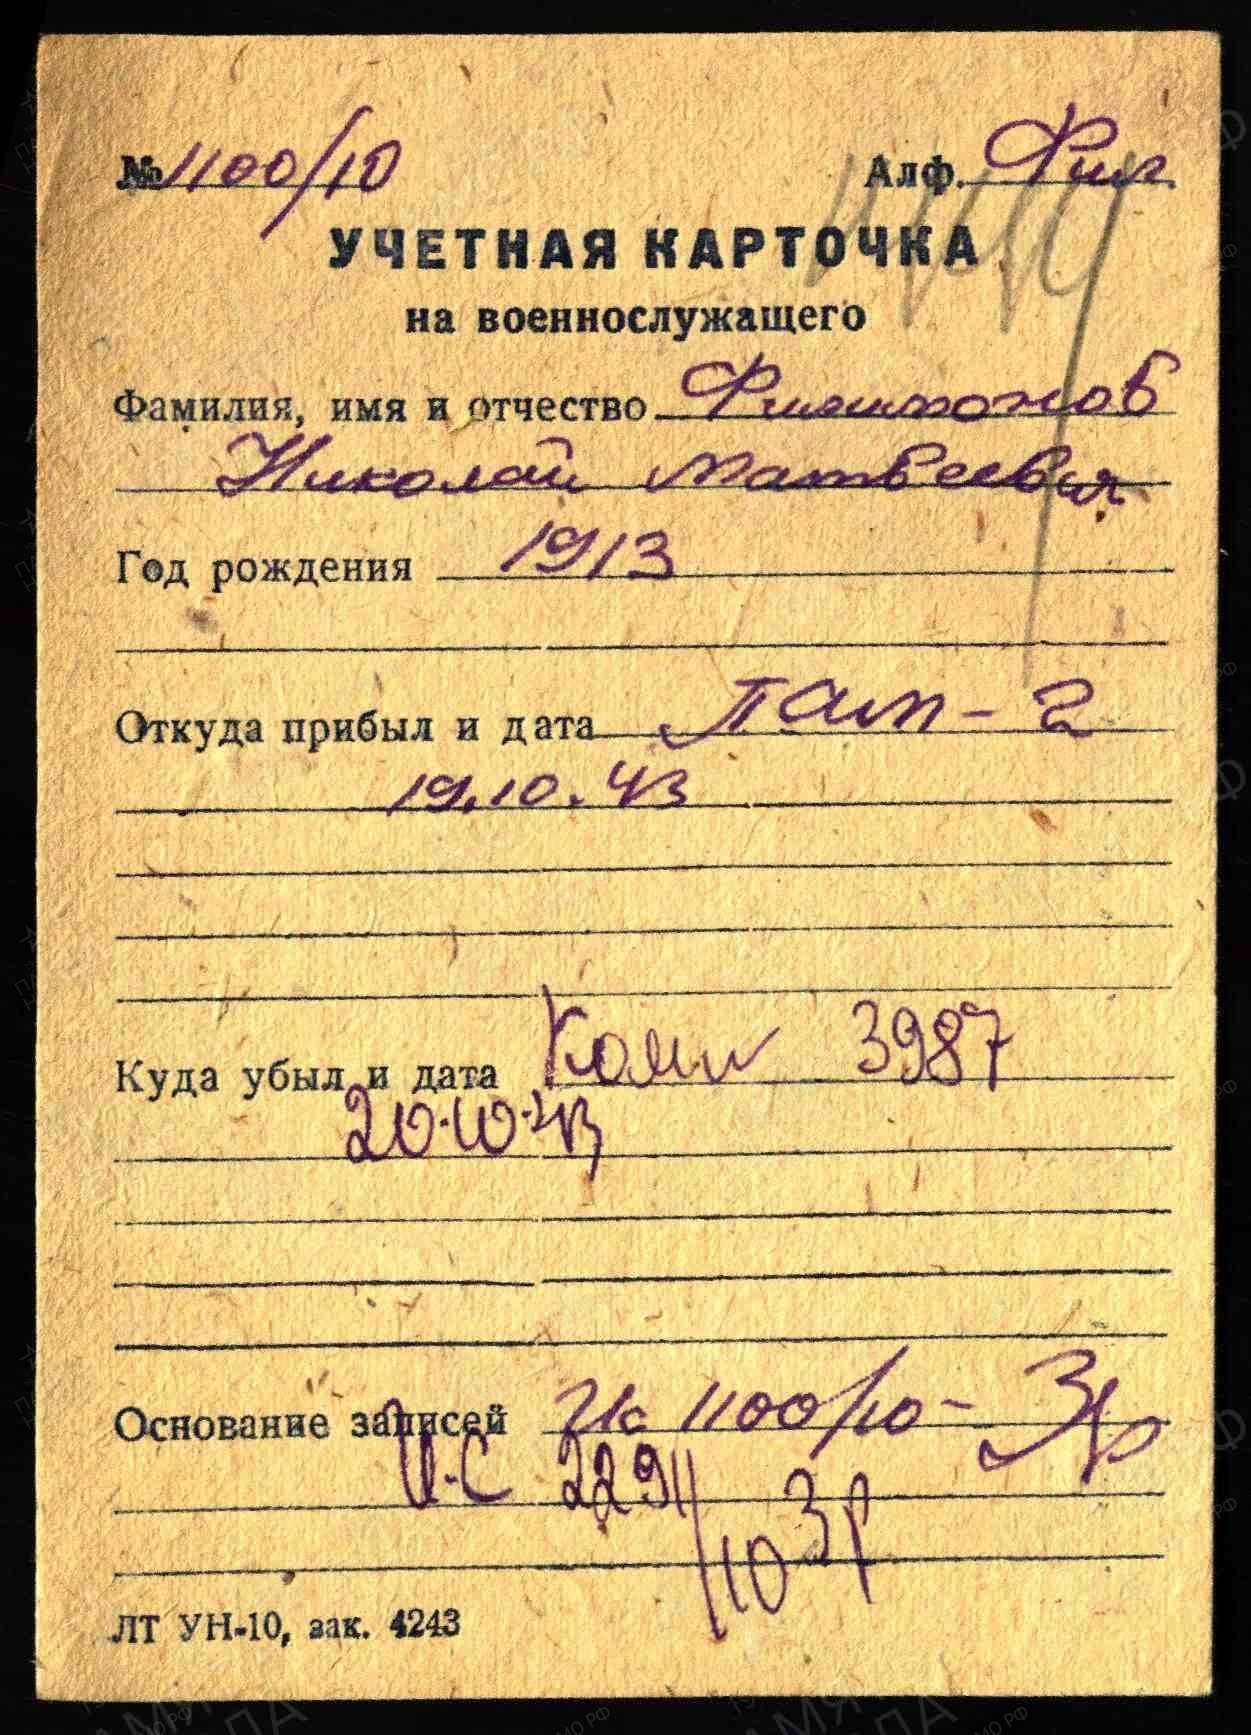 № 1100/10 Алф. Фил
УЧЕТНАЯ КАРТОЧКА
на военнослужащего
Фамилия, имя и отчество Филимонов
Николай Матвеевич
Год рождения 1913
Откуда прибыл и дата
19.10.43
Куда убыл и дата 3987
20.10.43
Основание записей 1100/10 -
И-С 2291/10
ЛТ УН-10, зак. 4243